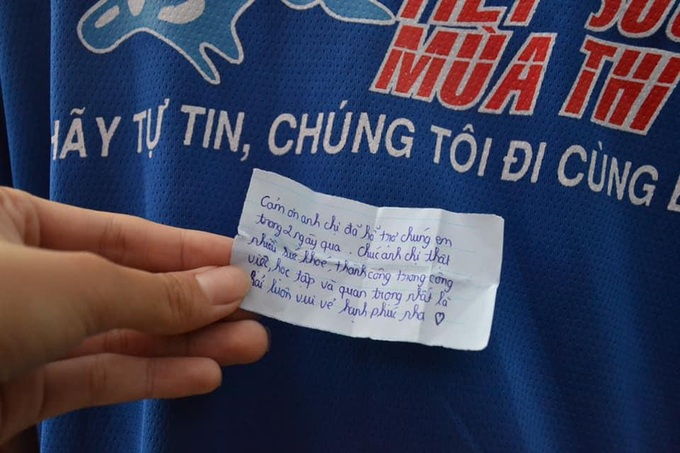 TIẾP SỨC
MÙA THI
HÃY TỰ TIN, CHÚNG TÔI ĐI CÙNG
Cảm ơn anh chị đã hỗ trợ chúng em
trong 2 ngày qua. Chúc anh chị thật
nhiều sức khoẻ, thành công trong công
việc, học tập và quan trọng nhất là
phải luôn vui vẻ hạnh phúc nha ♡